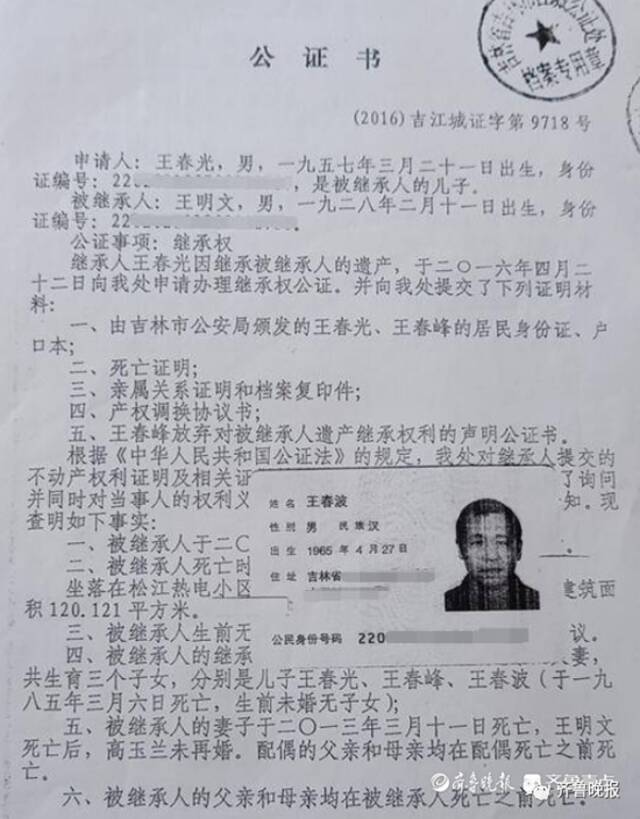 公证书
吉林省吉林市江城公证处
档案专用章
(2016)吉江城证字第9718号
申请人：王春光，男，一九五七年三月二十一日出生，身份
证编号：220，是被继承人的儿子。
被继承人：王明文，男，一九二八年二月十一日出生，身份
证编号：220。
公证事项：继承权
继承人王春光因继承被继承人的遗产，于二〇一六年四月二
十二日向我处申请办理继承权公证。并向我处提交了下列证明材
料：
一、由吉林市公安局颁发的王春光、王春峰的居民身份证、户
口本；
二、死亡证明；
三、亲属关系证明和档案复印件；
四、产权调换协议书；
五、王春峰放弃对被继承人遗产继承权利的声明公证书。
根据《中华人民共和国公证法》的规定，我处对继承人提交的
不动产权利证明及相关证 了询问
并同时对当事人的权利义 知。现
查明如下事实：
一、被继承人于二〇
二、被继承人死亡时
坐落在松江热电小区 建筑面
积120.121平方米。
三、被继承人生前无 议。
四、被继承人的继承 妻，
共生育三个子女，分别是儿子王春光、王春峰、王春波（于一九
八五年三月六日死亡，生前未婚无子女）；
五、被继承人的妻子于二〇一三年三月十一日死亡，王明文
死亡后，高玉兰未再婚。配偶的父亲和母亲均在配偶死亡之前死
亡。
六、被继承人的父亲和母亲均在被继承人死亡之前死亡。
姓名 王春波
性别 男 民族 汉
出生 1965年4月27日
住址 吉林省
公民身份号码 220
齐鲁晚报 齐鲁壹点
齐鲁晚报